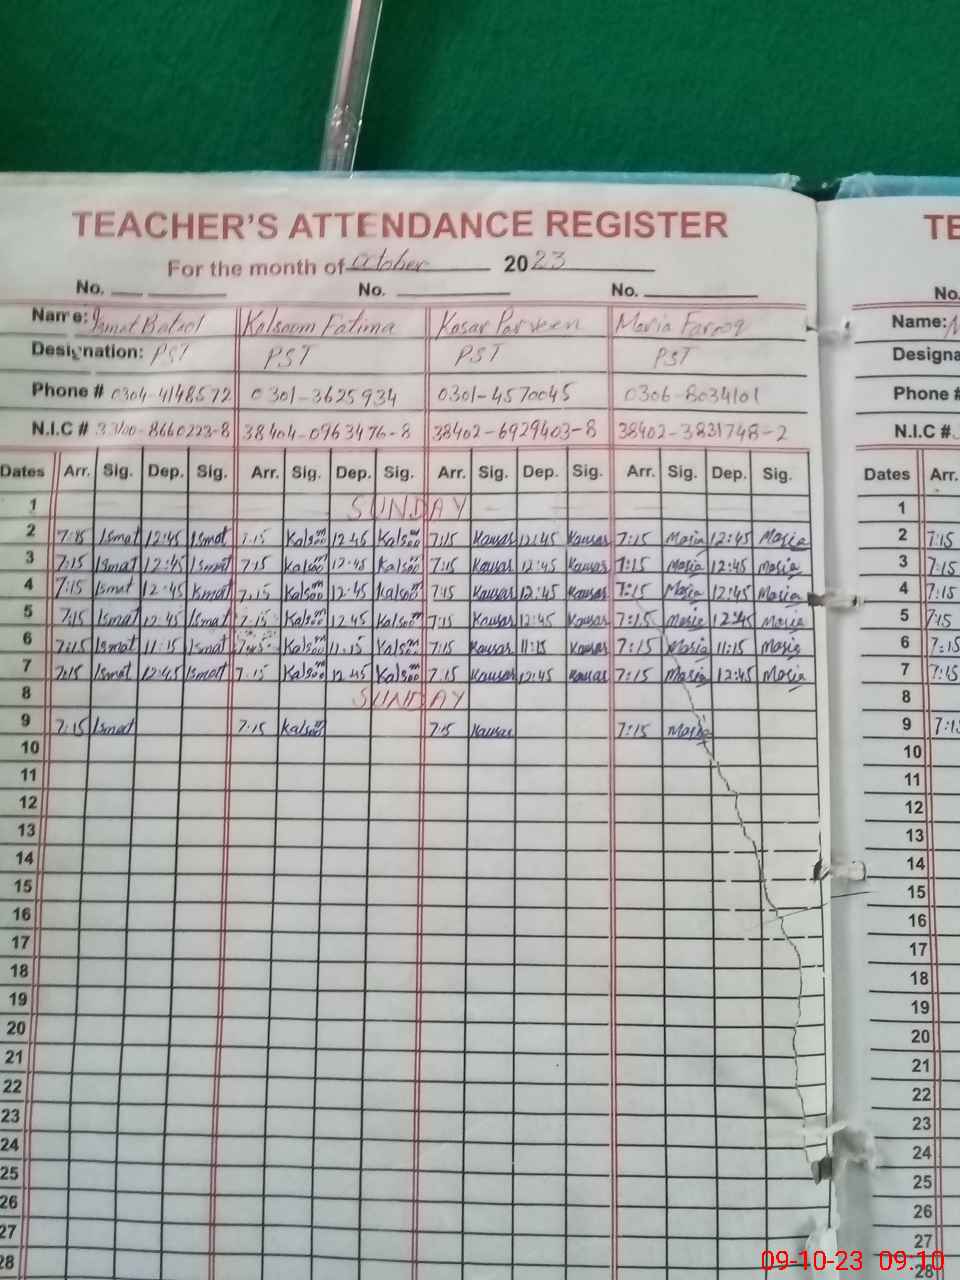 TEACHER'S ATTENDANCE REGISTER TE
For the month of October 2023
No. No. No. No.
Name: Ismat Batool Kalsoom Fatima Kosar Parveen Maria Farooq Name:
Designation: PST PST PST PST Designa
Phone # 0304-4148572 0301-3625934 0301-4570045 0306-8034101 Phone #
N.I.C # 33100-8660223-8 38404-0963476-8 38402-6929403-8 38402-3831748-2 N.I.C #
Dates Arr. Sig. Dep. Sig. Arr. Sig. Dep. Sig. Arr. Sig. Dep. Sig. Arr. Sig. Dep. Sig. Dates Arr.
1 SUNDAY 1
2 7:15 Ismat 12:45 Ismat 7:15 Kalsoom 12:45 Kalsoom 7:15 Kausar 12:45 Kausar 7:15 Maria 12:45 Maria 2 7:15
3 7:15 Ismat 12:45 Ismat 7:15 Kalsoom 12:45 Kalsoom 7:15 Kausar 12:45 Kausar 7:15 Maria 12:45 Maria 3 7:15
4 7:15 Ismat 12:45 Ismat 7:15 Kalsoom 12:45 Kalsoom 7:15 Kausar 12:45 Kausar 7:15 Maria 12:45 Maria 4 7:15
5 7:15 Ismat 12:45 Ismat 7:15 Kalsoom 12:45 Kalsoom 7:15 Kausar 12:45 Kausar 7:15 Maria 12:45 Maria 5 7:15
6 7:15 Ismat 11:15 Ismat Kalsoom 11:15 Kalsoom 7:15 Kausar 11:15 Kausar 7:15 Maria 11:15 Maria 6 7:15
7 7:15 Ismat 12:45 Ismat 7:15 Kalsoom 12:45 Kalsoom 7:15 Kausar 12:45 Kausar 7:15 Maria 12:45 Maria 7 7:15
8 SUNDAY 8
9 7:15 Ismat 7:15 Kalsoom 7:15 Kausar 7:15 Maria 9
10 10
11 11
12 12
13 13
14 14
15 15
16 16
17 17
18 18
19 19
20 20
21 21
22 22
23 23
24 24
25 25
26 26
27 27
28 28
09-10-23 09:10